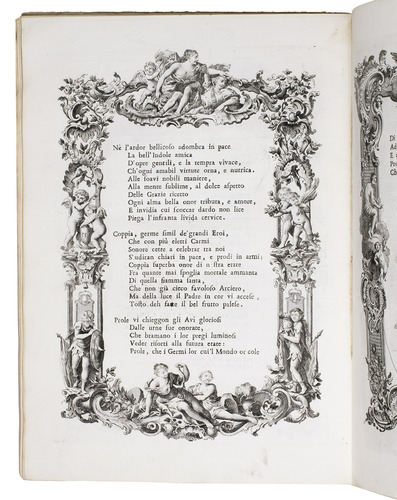 Nè l'ardor bellicoso adombra in pace
La bell'Indole amica
D'opre gentili, e la tempra vivace,
Ch'ogni amabil virtute orna, e nutrica.
Alle soavi nobili maniere,
Alla mente sublime, al dolce aspetto
Delle Grazie ricetto
Ogni alma bella onor tributa, e amore,
E invidia cui scoccar dardo non lice
Piega l'infranta livida cervice.
Coppia, germe simil de'grandi Eroi,
Che con più eletti Carmi
Sonore cetre a celebrar tra noi
S'udiran chiari in pace, e prodi in armi;
Coppia superba onor di nostra etate
Fra quante mai spoglia mortale ammanta
Di quella fiamma santa,
Che non già cieco favoloso Arciero,
Ma della luce il Padre in cor vi accese,
Tosto deh fate il bel frutto palese.
Prole vi chieggon gli Avi gloriosi
Dalle urne fue onorate,
Che bramano i lor pregi luminosi
Veder risorti alla futura etate:
Prole, che i Germi lor cui'l Mondo or cole
Di
Ad
E
Pro
Ch